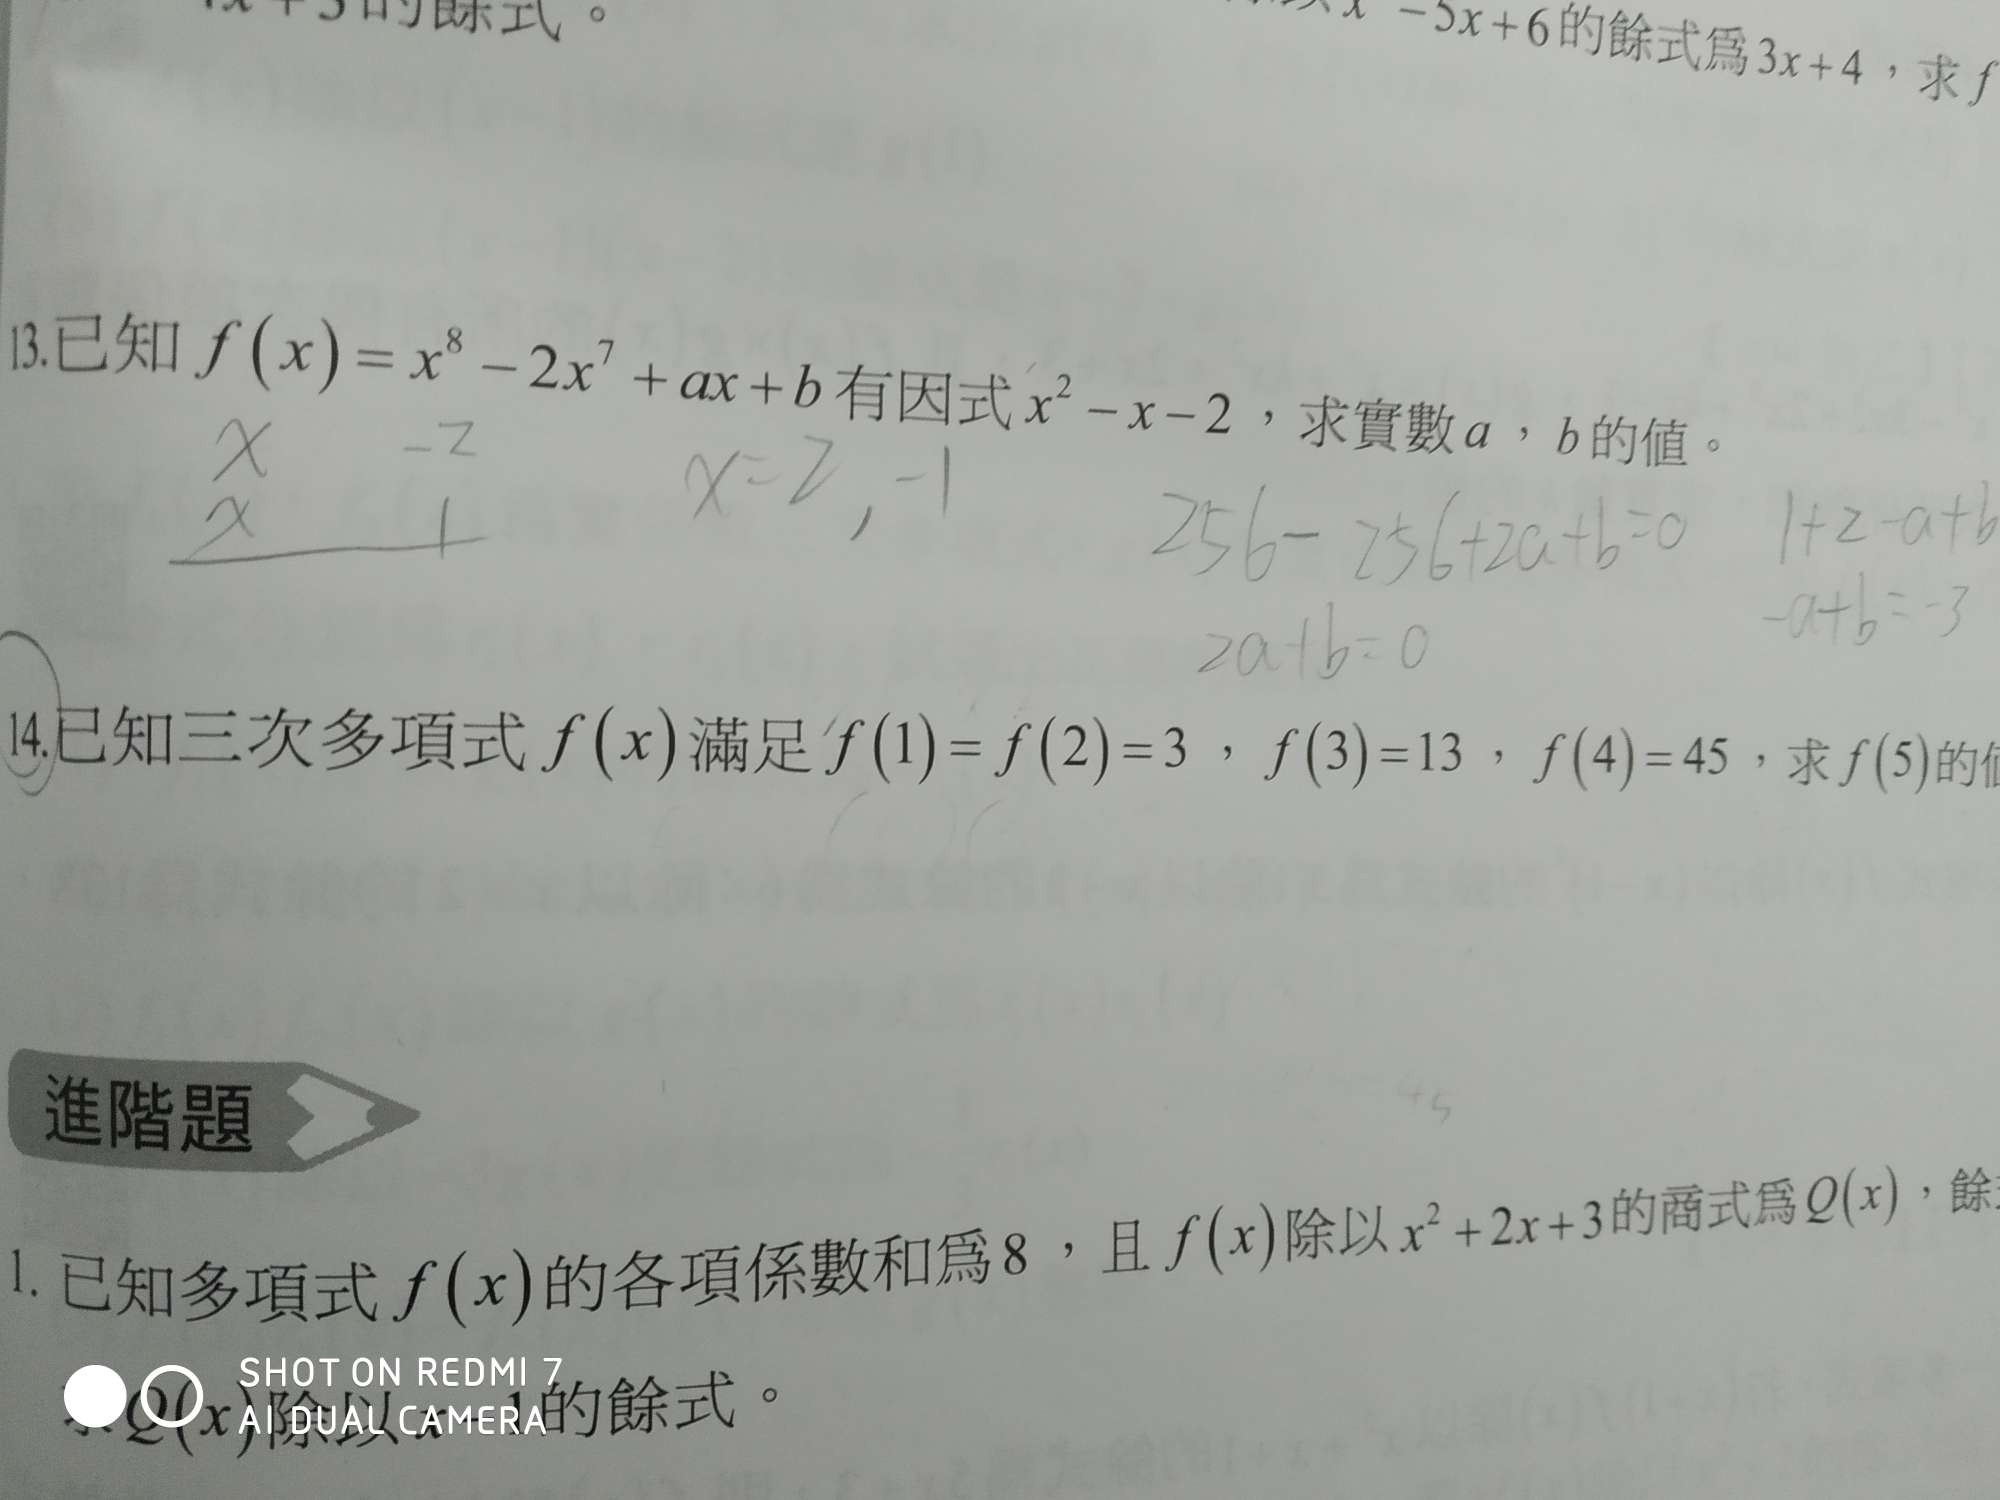 的餘式。
-5x+6的餘式為3x+4，求f
13.已知 f(x)=x⁸-2x⁷+ax+b有因式x²-x-2，求實數a，b的值。
x -2
x 1
x=2,-1
256-256+2a+b=0
2a+b=0
1+2-a+b
-a+b=-3
14.已知三次多項式f(x)滿足f(1)=f(2)=3，f(3)=13，f(4)=45，求f(5)的
45
進階題
1. 已知多項式f(x)的各項係數和為8，且f(x)除以x²+2x+3的商式為Q(x)，餘
Q(x)除以x-1的餘式。
SHOT ON REDMI 7
AI DUAL CAMERA